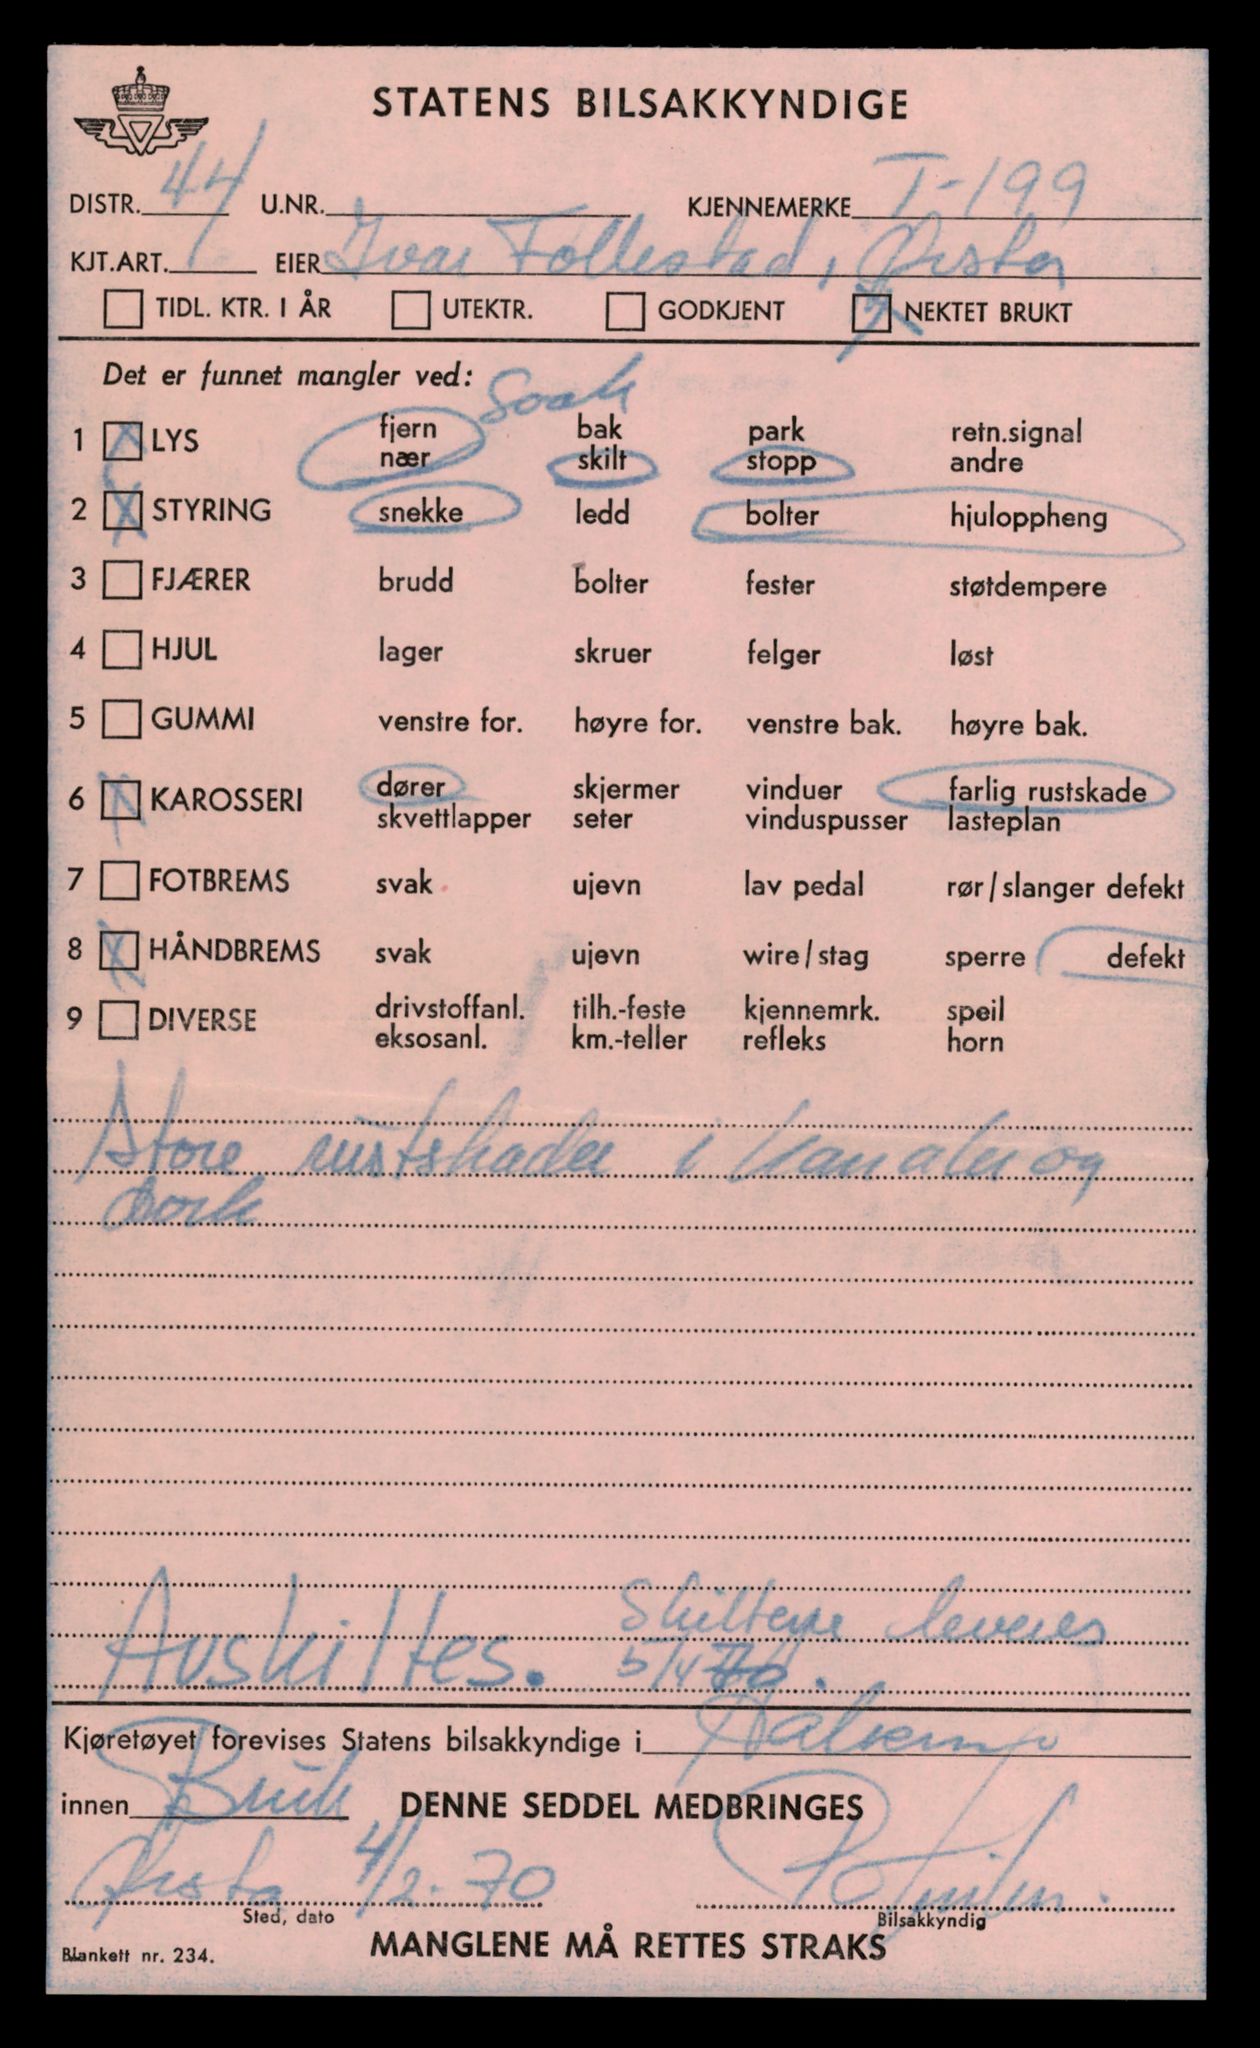 STATENS BILSAKKYNDIGE
DISTR. 44 U.NR. KJENNEMERKE T-199
KJT.ART. 1 EIER Ivar Follestad, Ørsta
TIDL. KTR. I ÅR UTEKTR. GODKJENT X NEKTET BRUKT
Det er funnet mangler ved: Svak
1 X LYS fjern bak park retn.signal
nær skilt stopp andre
2 X STYRING snekke ledd bolter hjuloppheng
3 FJÆRER brudd bolter fester støtdempere
4 HJUL lager skruer felger løst
5 GUMMI venstre for. høyre for. venstre bak. høyre bak.
6 X KAROSSERI dører skjermer vinduer farlig rustskade
skvettlapper seter vinduspusser lasteplan
7 FOTBREMS svak ujevn lav pedal rør/slanger defekt
8 X HÅNDBREMS svak ujevn wire/stag sperre defekt
9 DIVERSE drivstoffanl. tilh.-feste kjennemrk. speil
eksosanl. km.-teller refleks horn
Store rustskader i kanaler og
dørk
Skiltene leveres
Avskiltes. 5/4 70.
Kjøretøyet forevises Statens bilsakkyndige i
innen Bruk DENNE SEDDEL MEDBRINGES
Ørsta 4/2-70
Sted, dato Bilsakkyndig
Blankett nr. 234. MANGLENE MÅ RETTES STRAKS